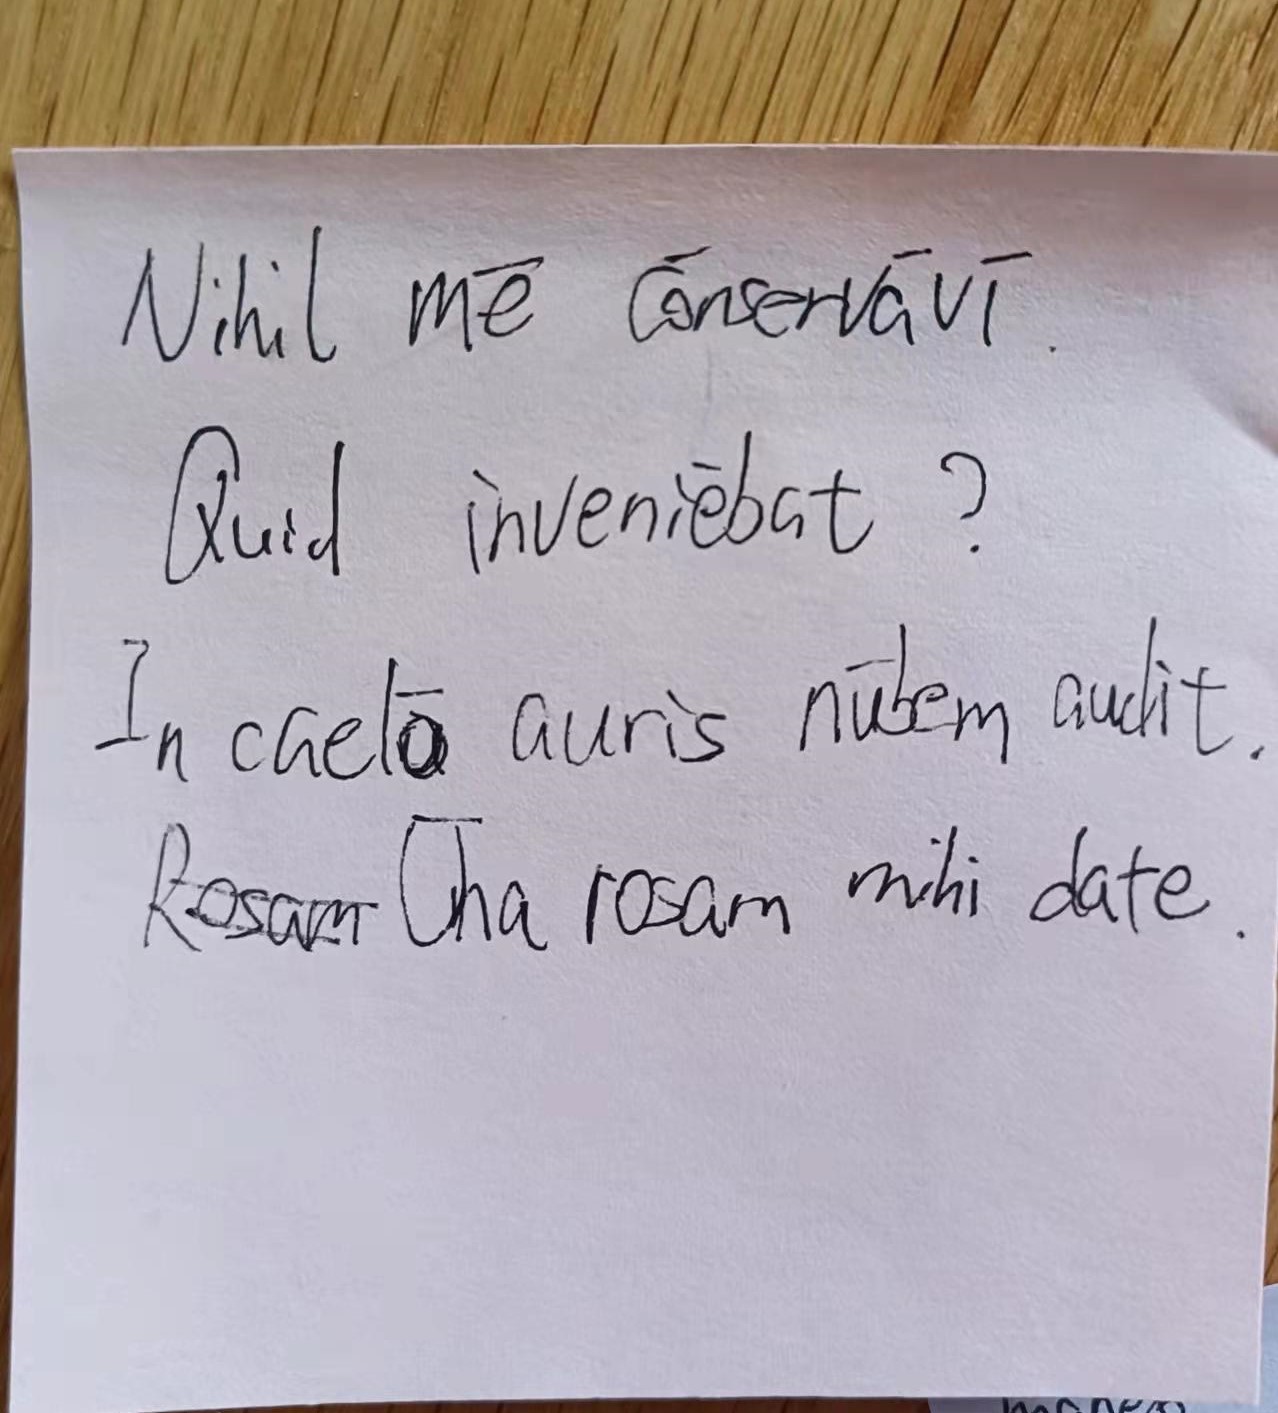 Nihil mē cōnservāvī.
Quid inveniēbat ?
In caelō auris nūbem audit.
Rosam Ūna rosam mihi date.